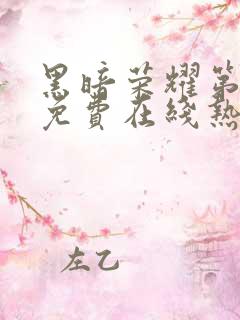 黑暗荣耀第
免費在线热
左乙